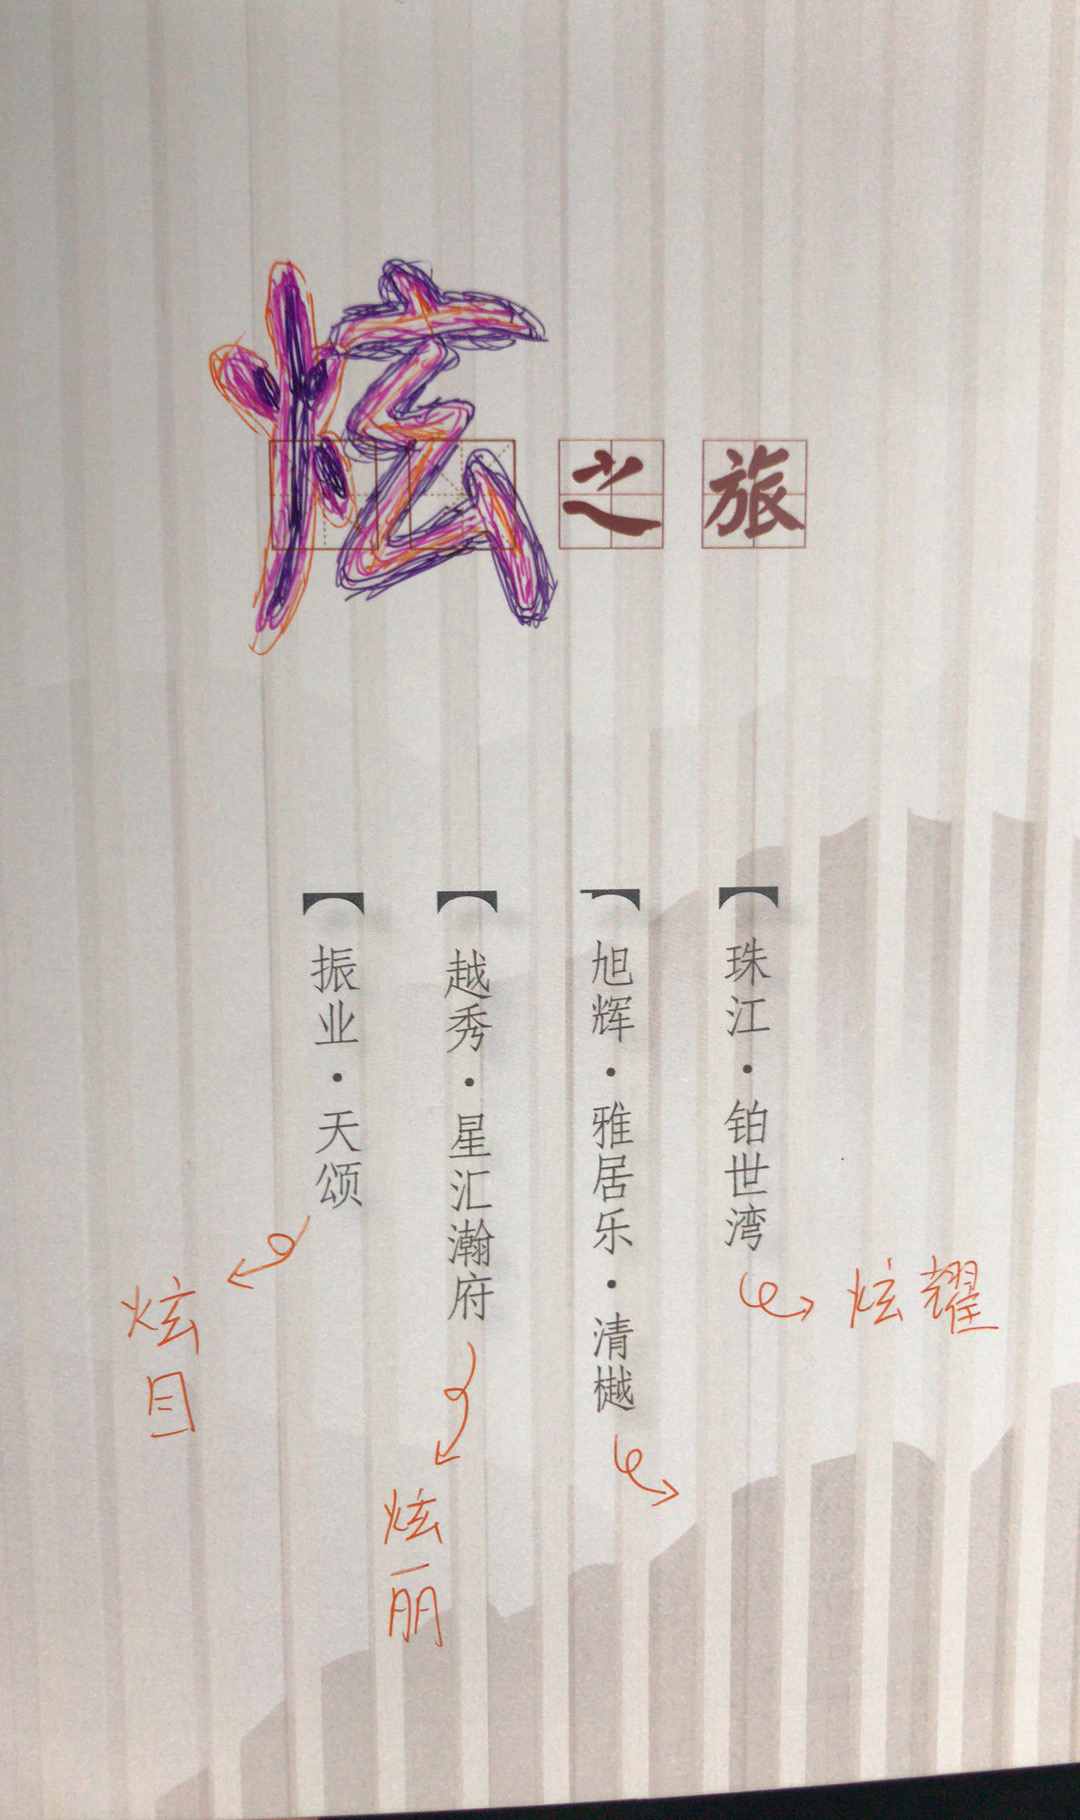 炫之旅
【珠江·铂世湾
炫耀
【旭辉·雅居乐·清樾
【越秀·星汇瀚府
炫丽
【振业·天颂
炫目